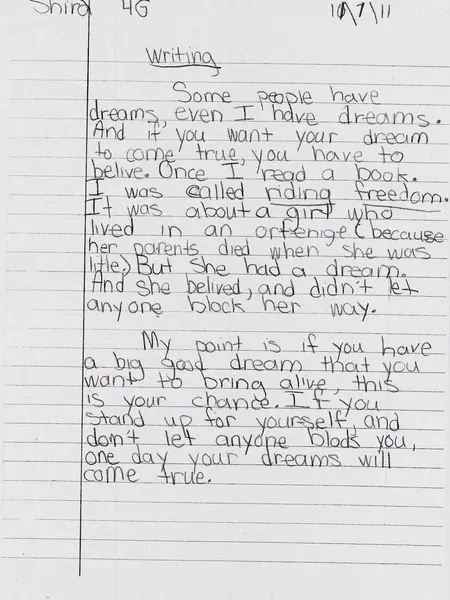 Shira 4G 10/7/11
Writing
Some people have
dreams, even I have dreams.
And if you want your dream
to come true, you have to
belive. Once I read a book.
I was called riding freedom.
It was about a girl who
lived in an orfenige (because
her parents died when she was
little.) But she had a dream.
And she belived, and didn't let
anyone block her way.
My point is if you have
a big good dream that you
want to bring alive, this
is your chance. If you
stand up for yourself, and
don't let anyone blods you,
one day your dreams will
come true.